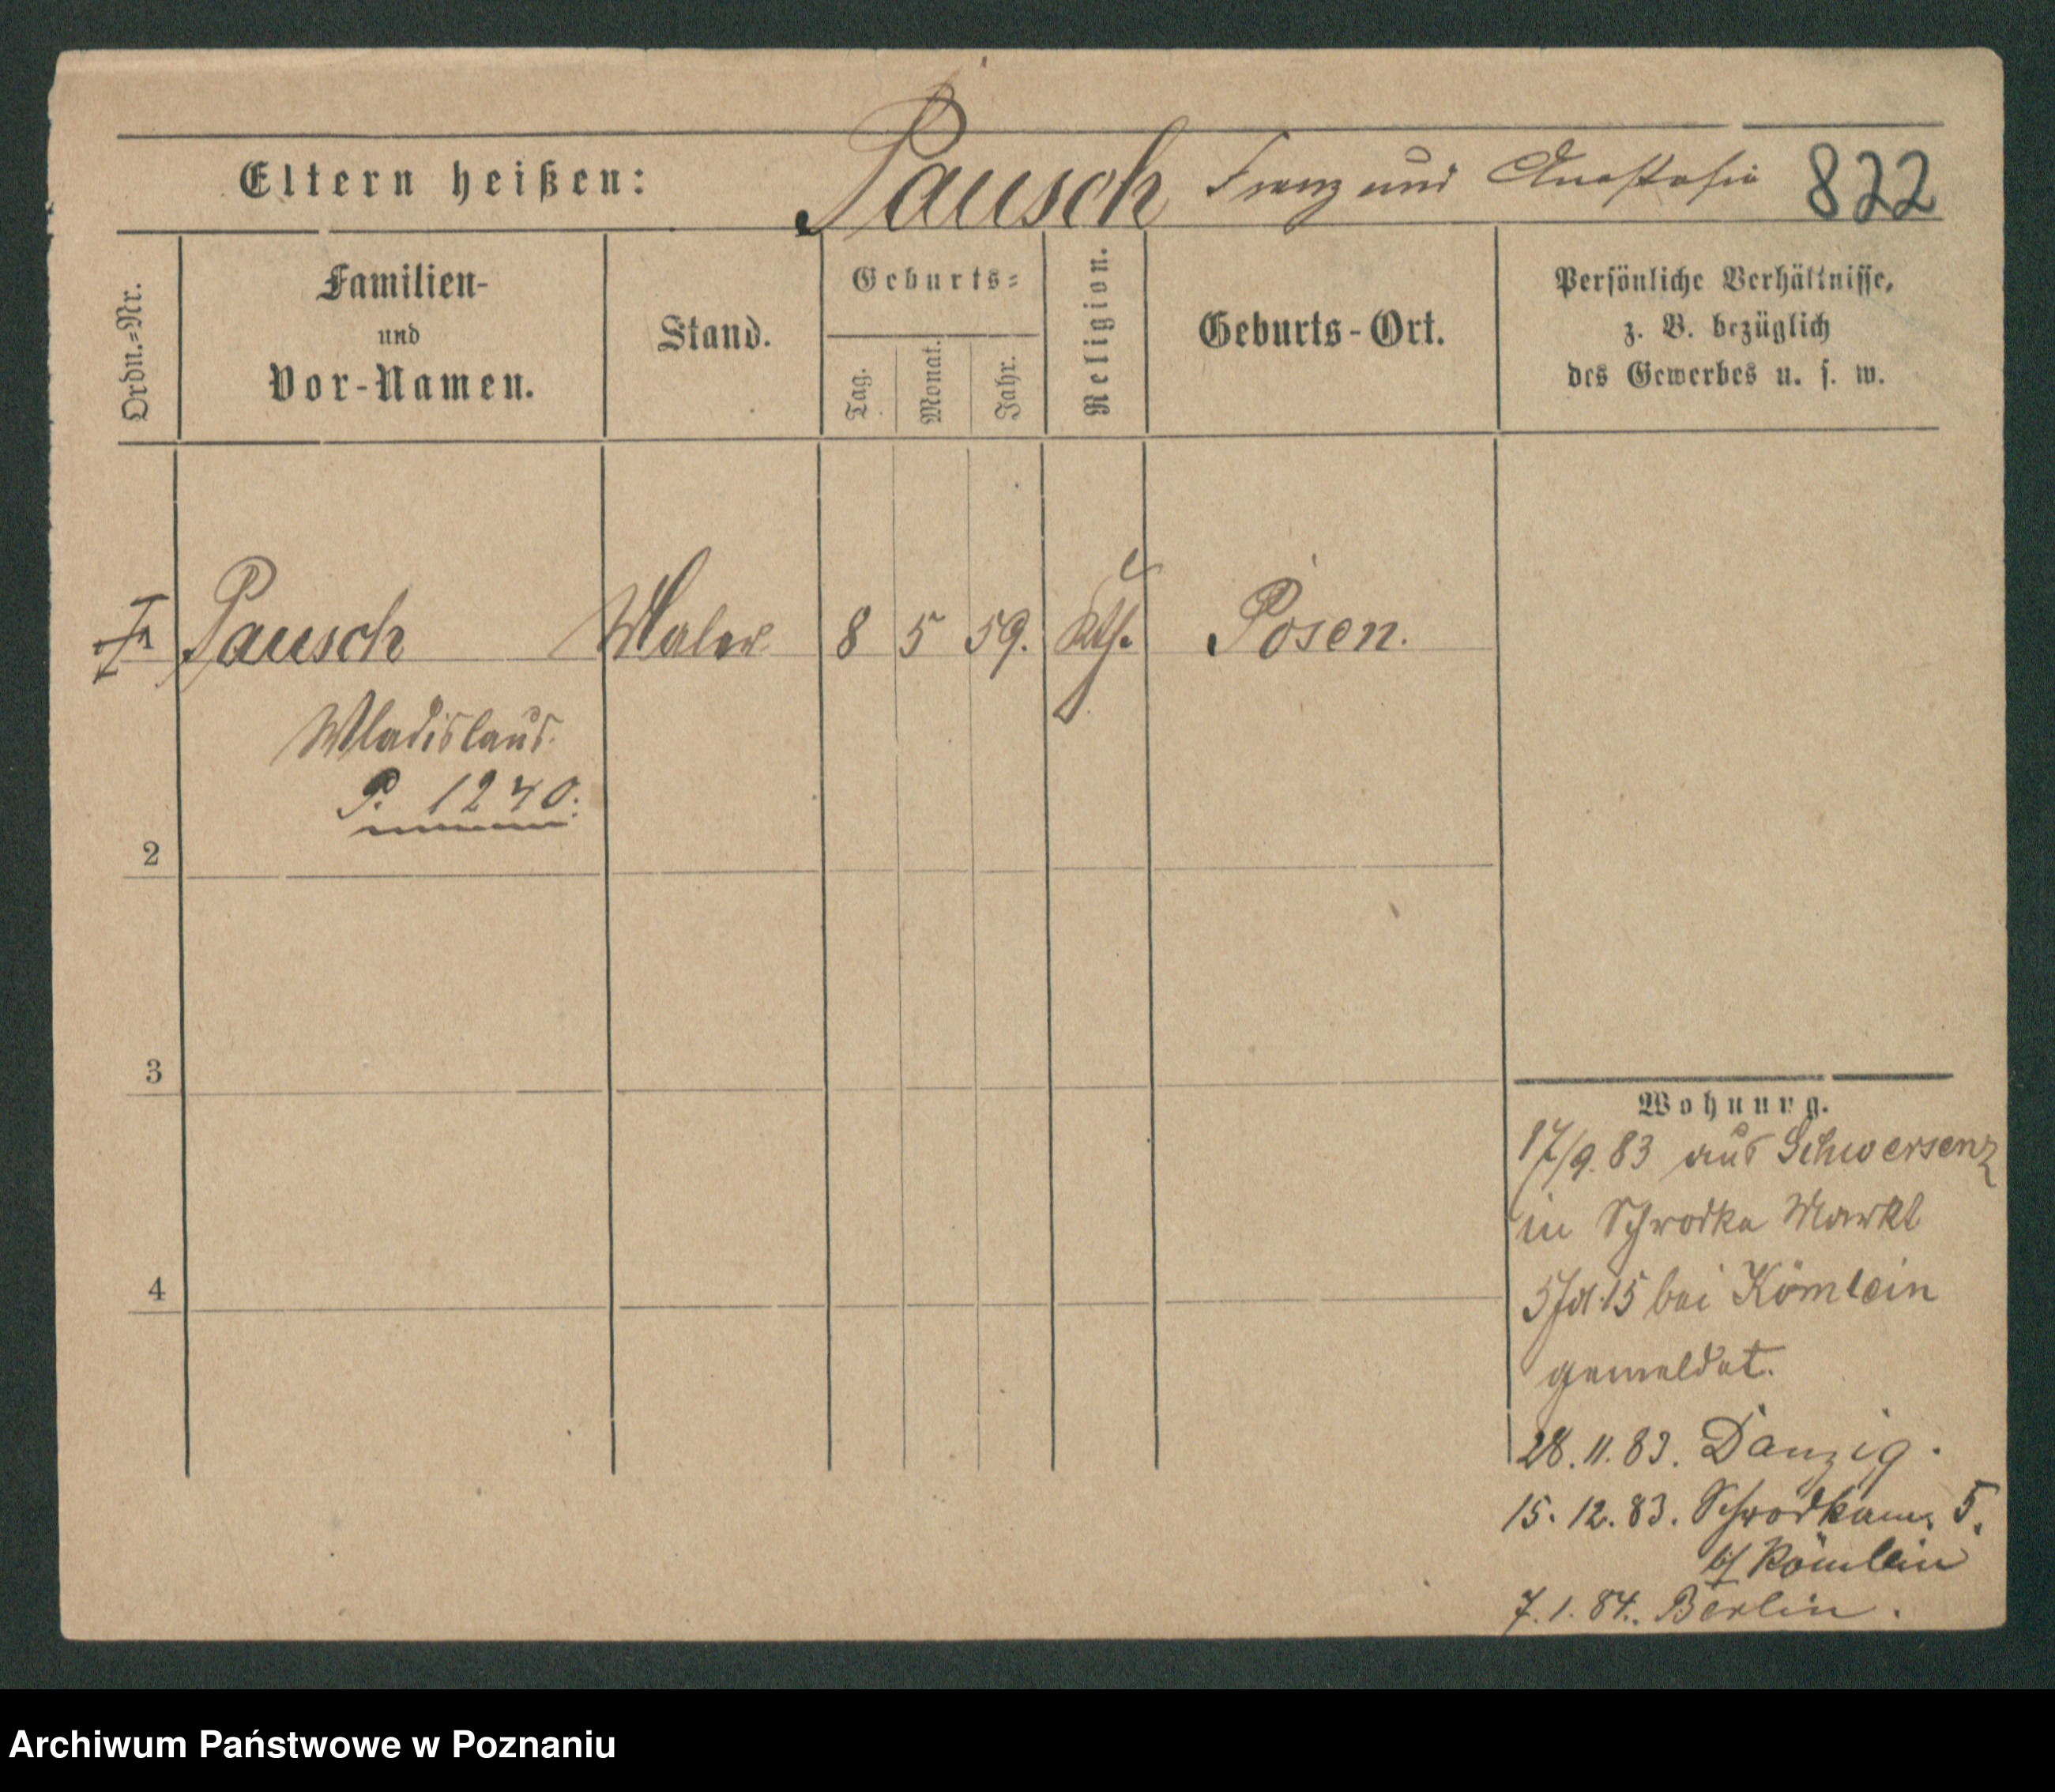 Eltern heißen: Pausch Franz und Anastasia 822
Ordn.=Nr.
Familien-
und
Vor-Namen.
Stand.
Geburts=
Tag.
Monat.
Jahr.
Religion.
Geburts-Ort.
Persönliche Verhältnisse,
z. B. bezüglich
des Gewerbes u. s. w.
Pausch Maler 8 5 59. Kth. Posen.
Wladislaus.
P. 1240.
2
3
4
Wohnung.
17/9.83 aus Schwersenz
in Schrodka Markt
15 bei Kömlein
gemeldet.
28.11.83. Danzig.
15.12.83. 5.
b/ Kömlein
7.1.84. Berlin.
Archiwum Państwowe w Poznaniu